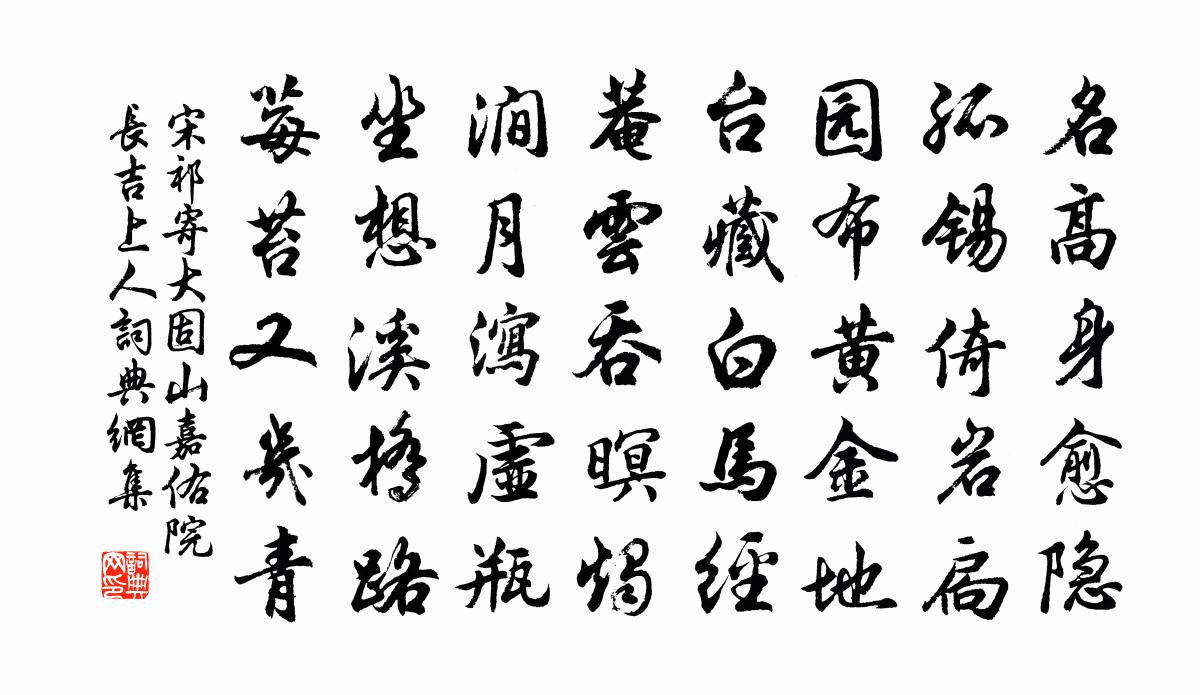 名高身愈隐
孤锡倚岩扃
园布黄金地
台藏白馬經
菴雲吞暝燭
澗月瀉虛瓶
坐想溪橋路
莓苔又幾青
宋祁寄大固山嘉佑院
長吉上人詞典網集
詞典网印